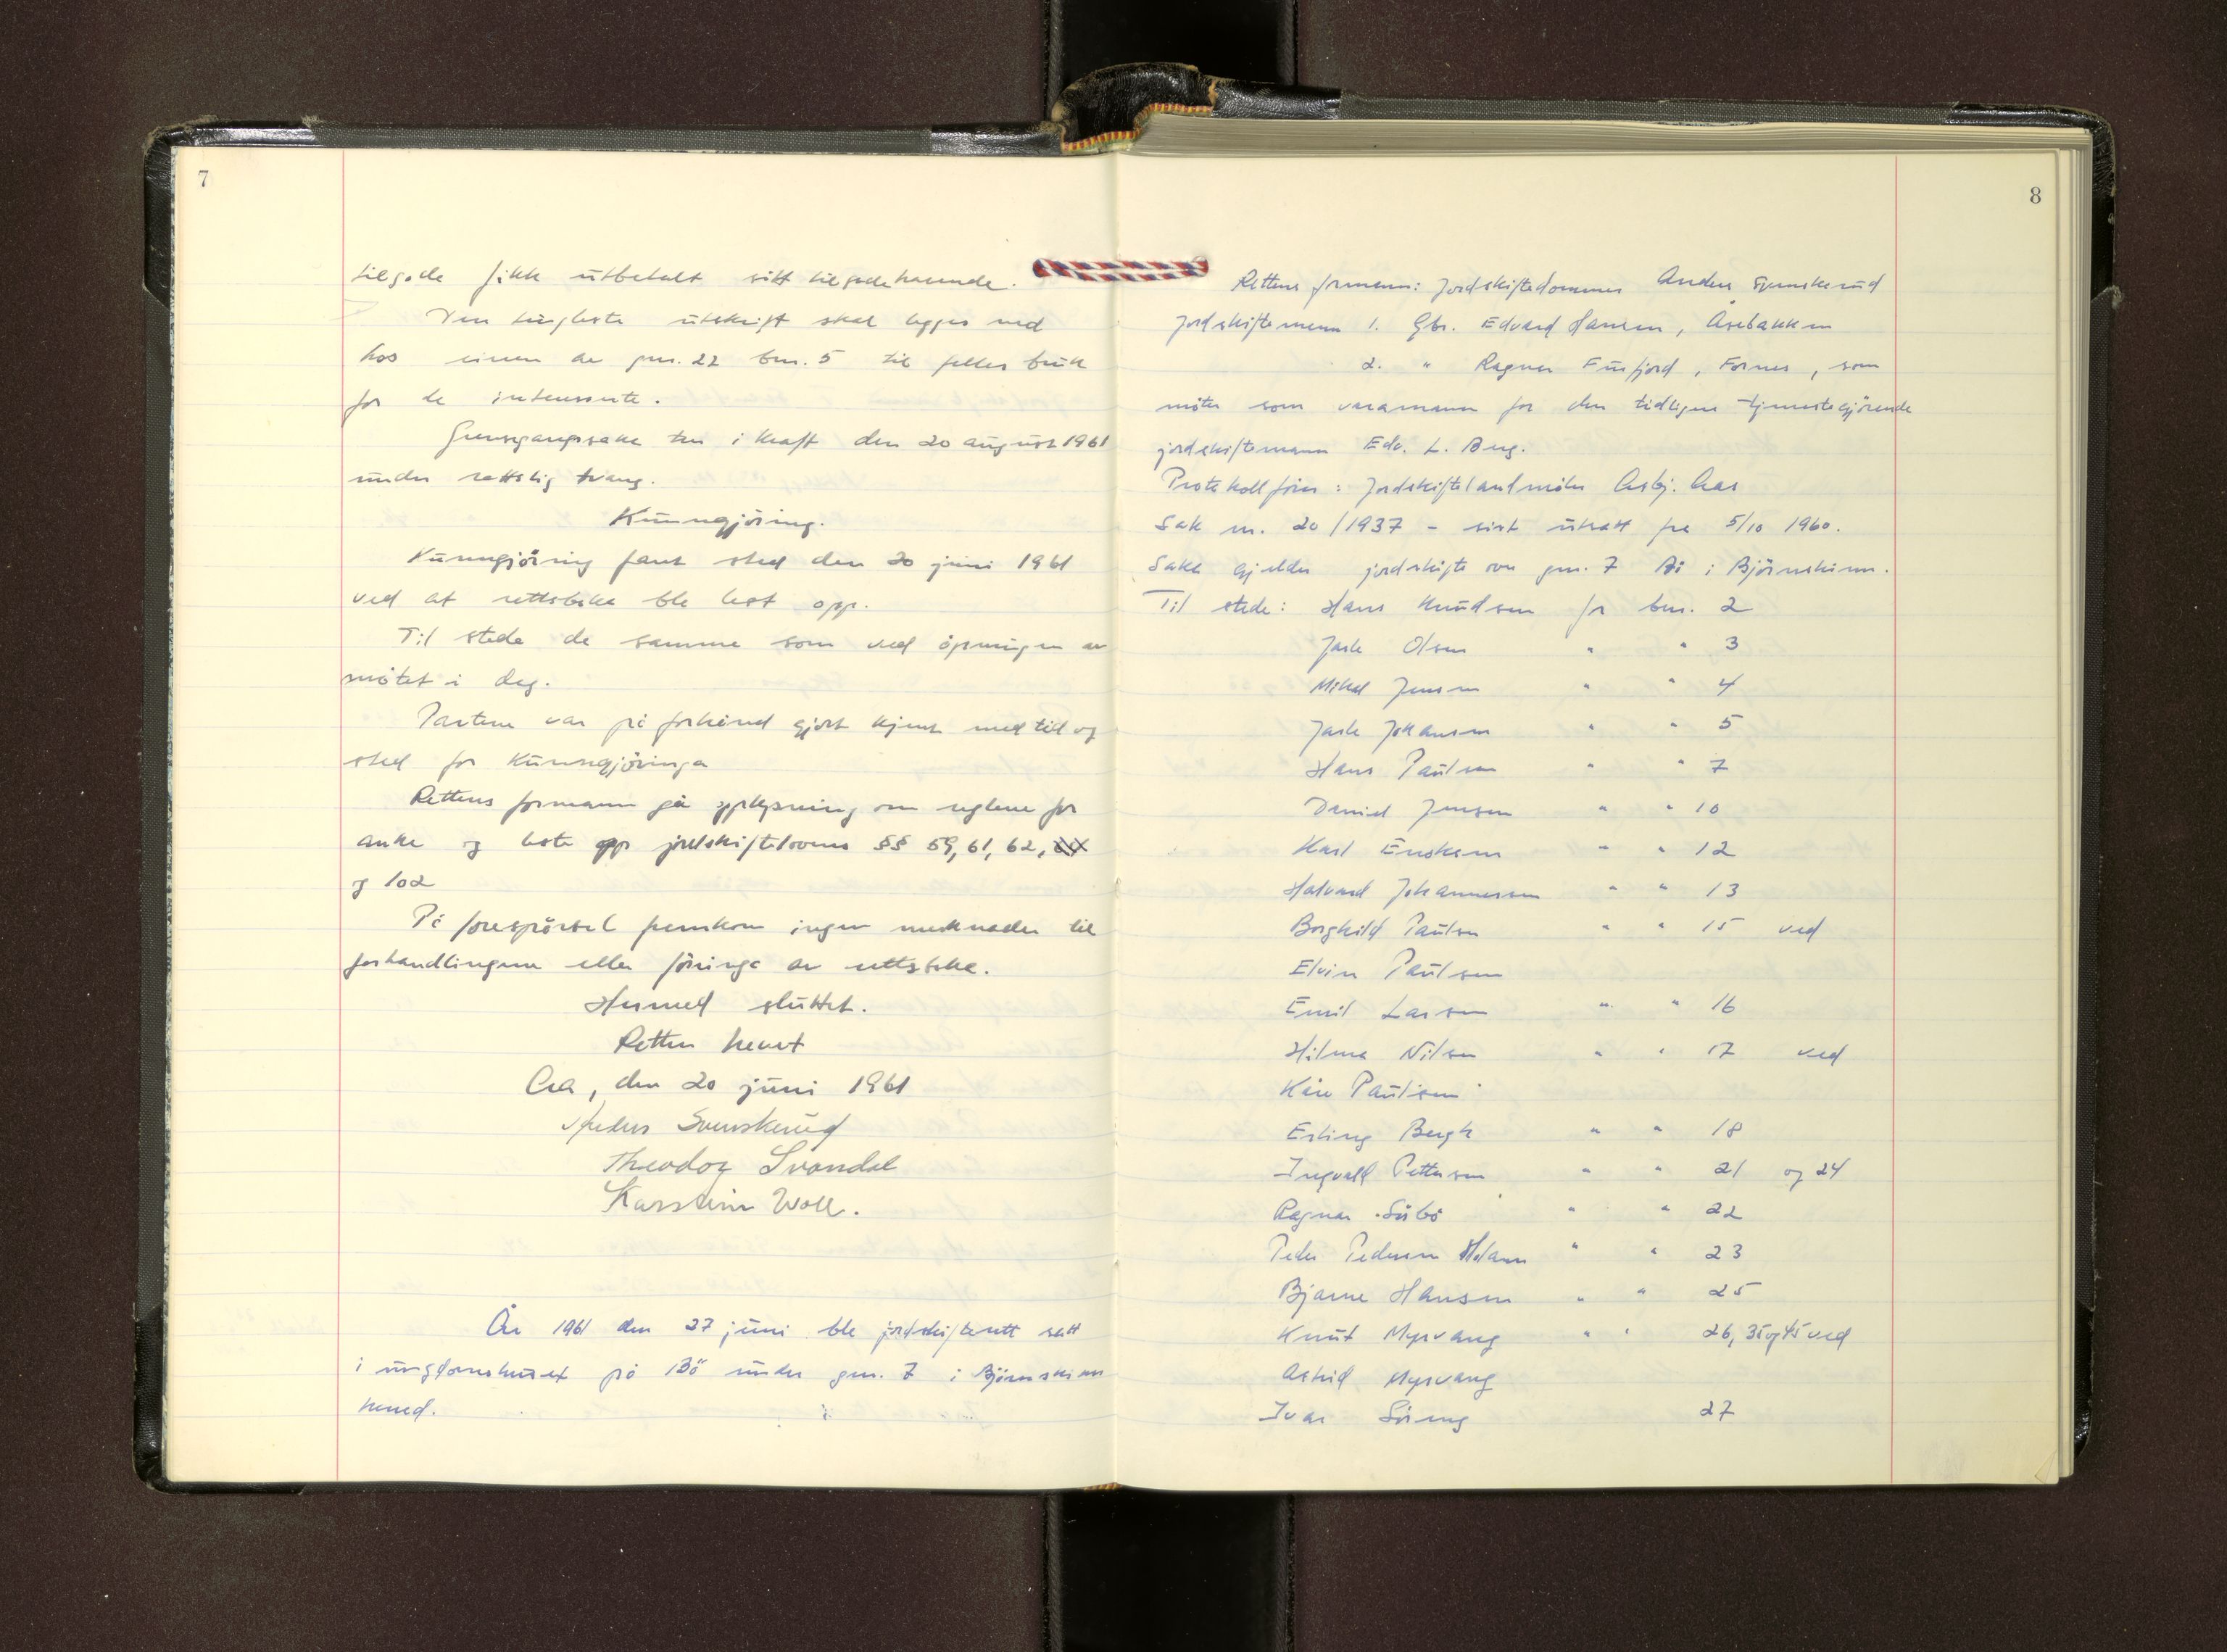 7
tilgode fikk utbetalt sitt tilgodehavende.
Den tinglyste utskrift skal legges ned
hos eieren av gnr. 22 bnr. 5 til felles bruk
for de interesserte.
Grensegangssaka trer i kraft den 20 august 1961
under rettslig tvang.
Kunngjøring.
Kunngjøring fant sted den 20 juni 1961
ved at rettsboka ble lest opp.
Til stede de samme som ved åpningen av
møtet i dag.
Partene var på forhånd gjort kjent med tid og
sted for kunngjøringa
Rettens formann ga opplysning om reglene for
anke og leste opp jordskiftelovens §§ 59, 61, 62,
og 102
På forespørsel fremkom ingen merknader til
forhandlingene eller føringa av rettsboka.
Hermed sluttet.
Retten hevet
Åa, den 20 juni 1961
Anders Svenskerud
Theodor Svandal
Karstein Woll.
År 1961 den 27 juni ble jordskifterett satt
i ungdomshuset på Bö under gnr. 7 i Bjørnskinn
herred.
8
Rettens formann: Jordskiftedommer Anders Svenskerud
Jordskiftemenn 1. Gbr. Edvard Hansen, Åsebakken
2. " Ragnar Finfjord, Fornes, som
møter som varamann for den tidligere tjenestegjørende
jordskiftemann Edv. L. Berg.
Protokollfører: Jordskiftelandmåler Asbj. Aas
Sak nr. 20/1937 - sist utsatt fra 5/10 1960.
Saka gjelder jordskifte over gnr. 7 Bö i Bjørnskinn.
Til stede: Hans Knudsen for bnr. 2
Jarle Olsen " " 3
Mikal Jensen " " 4
Jarle Johansen " " 5
Hans Paulsen " " 7
Daniel Jensen " " 10
Karl Enoksen " " 12
Halvard Johannessen " " 13
Borghild Paulsen " " 15 ved
Elvin Paulsen
Emil Larsen " " 16
Hilma Nilsen " " 17 ved
Kåre Paulsen
Erling Bergh " " 18
Ingvald Pettersen " " 21 og 24
Ragnar Sörbö " " 22
Peder Pedersen " " 23
Bjarne Hansen " " 25
Knut Myrvang " " 26, 35 og 45 ved
Astrid Myrvang
Ivar Söreng 27